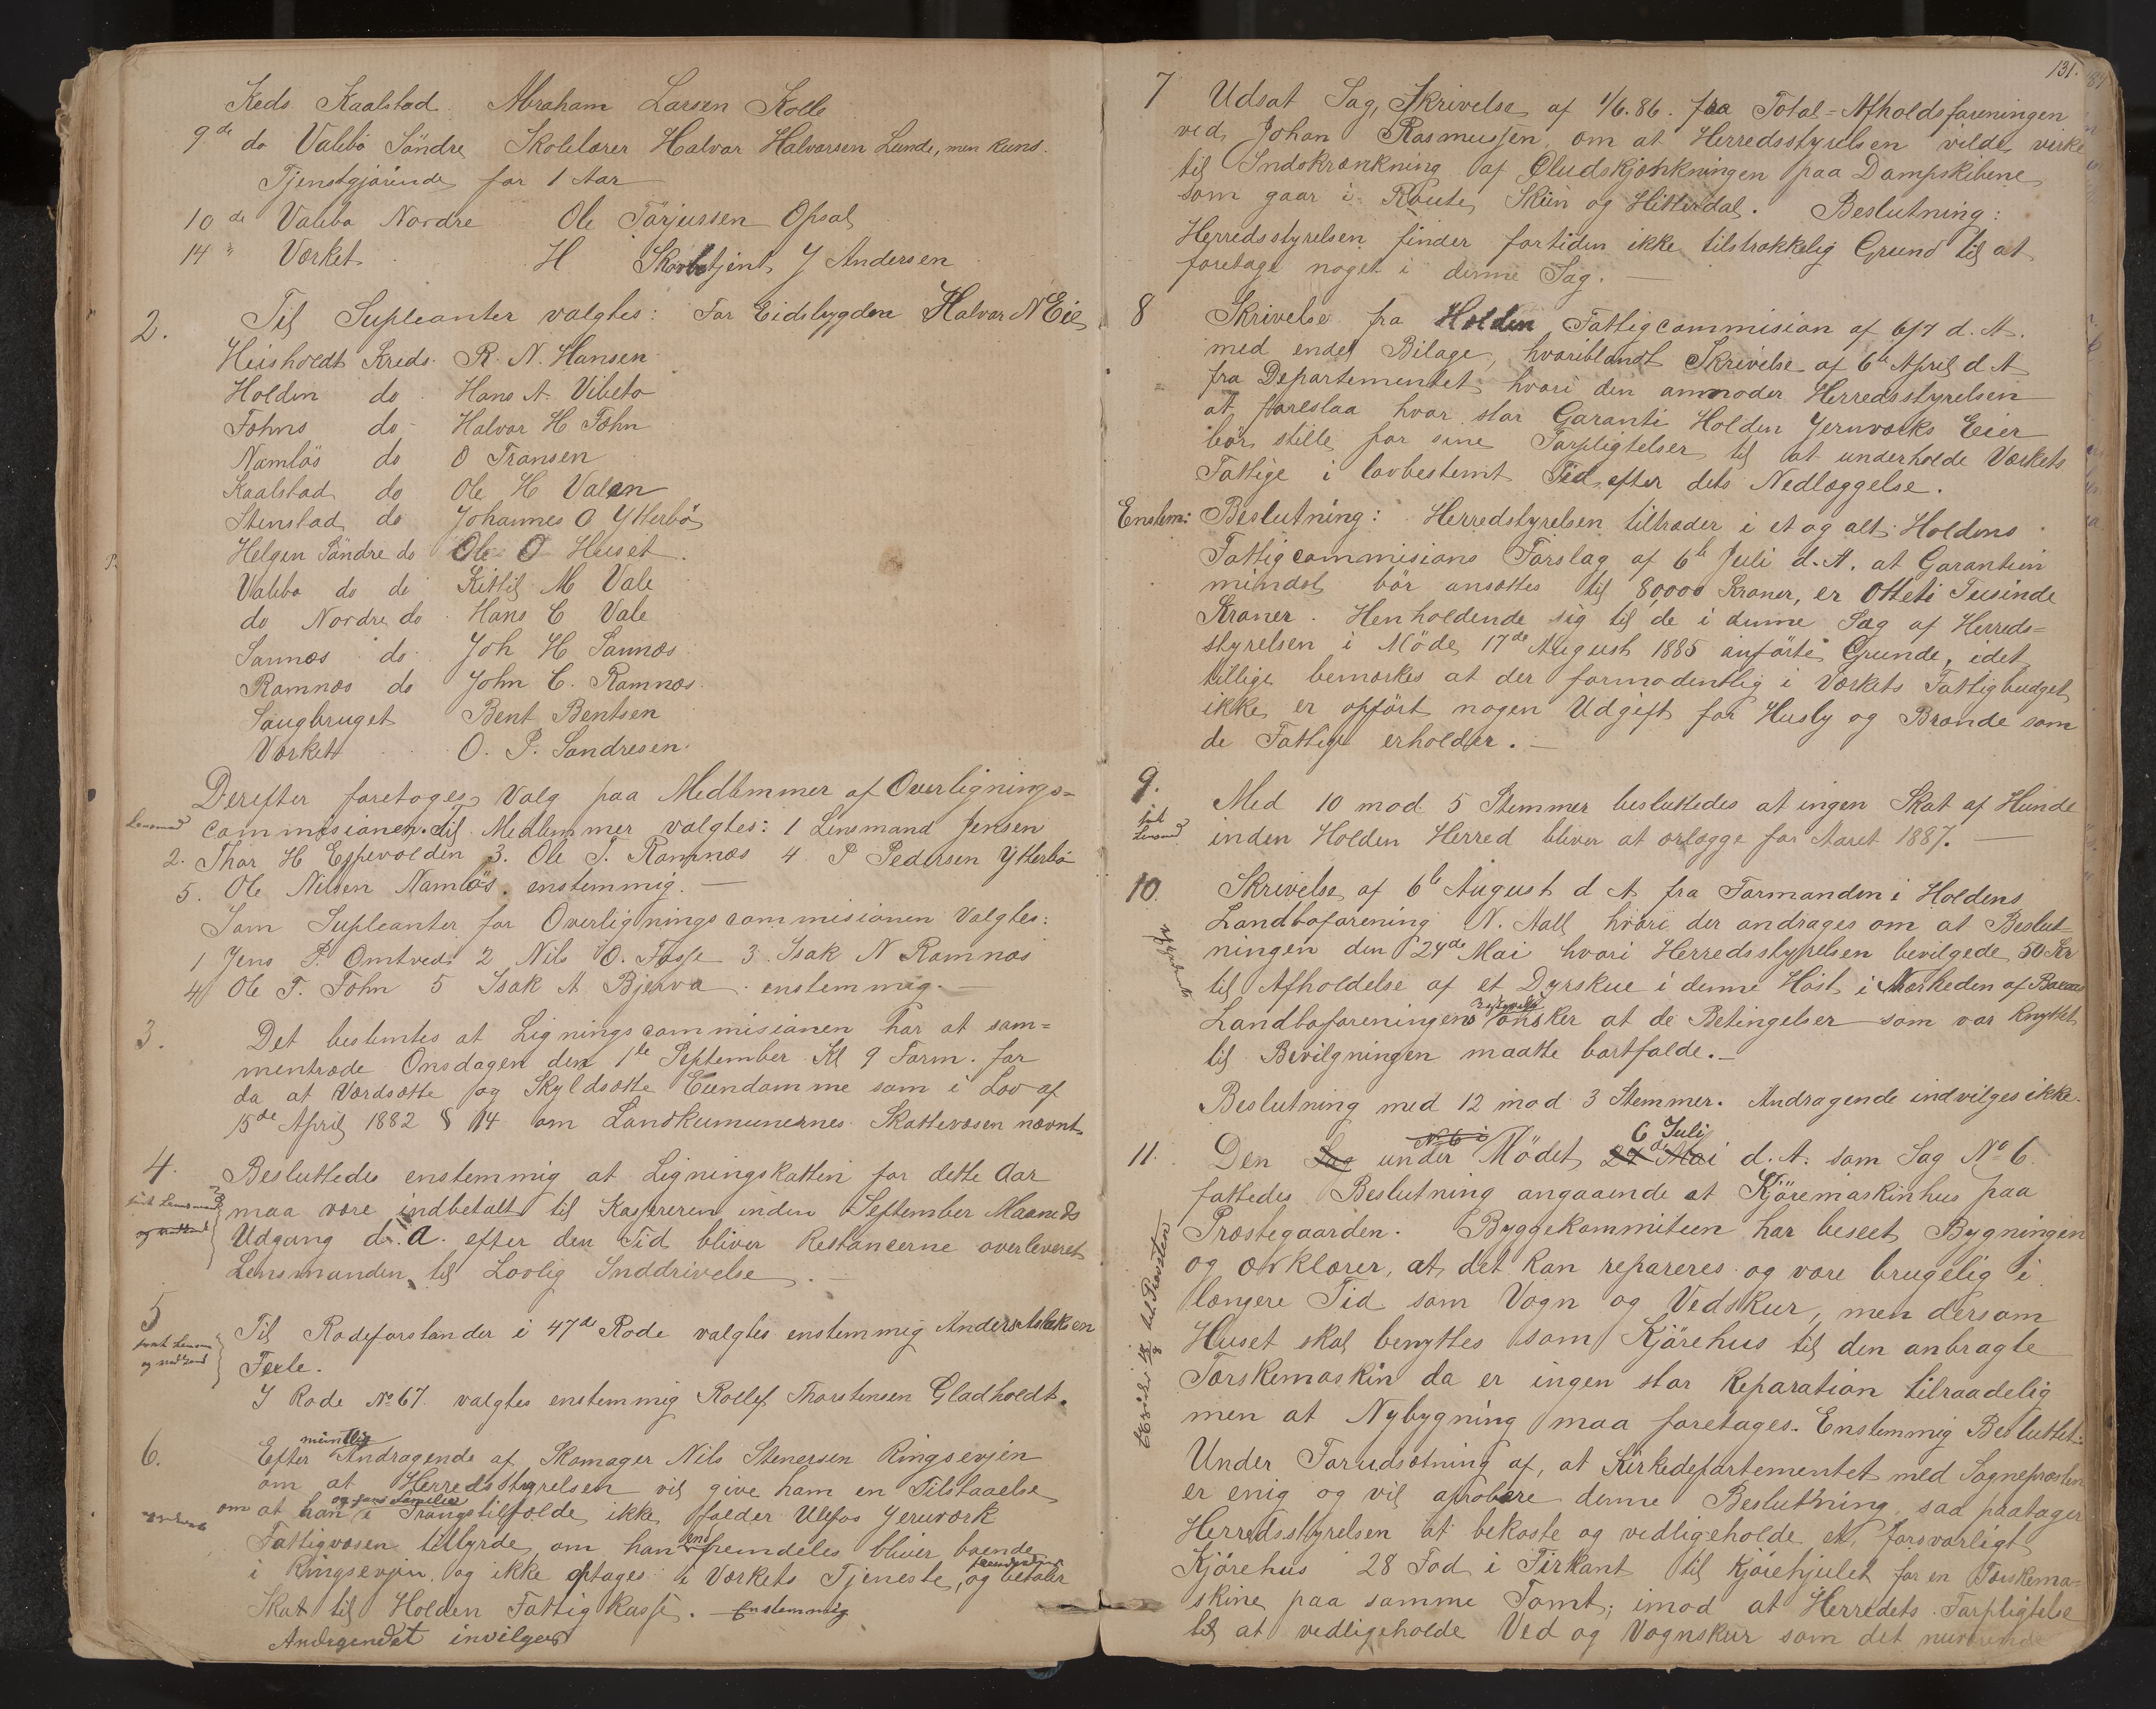 Kreds Kaalstad Abraham Larsen Kolle
9de do Valebø Söndre Skolelærer Halvor Halvorsen Lunde, men kuns
Tjenstgjörende for 1 Aar
10de Valebø Nordre Ole Törjussen Opsal
14" Værket H Skovbetjent J Andersen
2. Til Supleanter valgtes: For Eidsbygden Halvor N Eie
Heisholdt Kreds R. N. Hansen
Holden do Hans A. Vibeto
Fæhns do Halvor H Fæhn
Namløs do O Fransen
Kaalstad do Ole H Valen
Stenstad do Johannes O Ytterbö
Helgen Söndre do Ole O Huset
Valebø do do Kittil M Vale
do Nordre do Hans C Vale
Sannæs do Joh H Sannæs
Ramnæs do John C. Ramnæs
Saugbruget Bent Bentsen
Værket O. P. Sandresen
Derefter foretoges Valg paa Medlemmer af Overlignings=
commisionen. til Medlemmer valgtes: 1 Lensmand Jensen
2. Thor H Espevolden 3. Ole T. Ramnæs 4 P Pedersen Ytterbö
5. Ole Nilsen Namløs. enstemmig. —
Som Supleanter for Overligningscommisionen valgtes:
1 Jens P. Omtvedt 2 Nils O. Fosse 3. Isak N Ramnæs
4 Ole T. Fæhn 5 Isak A. Bjerva. enstemmig. —
3. Det bestemtes at Ligningscommisionen har at sam=
mentræde Onsdagen den 1te September Kl 9 Form. for
da at Værdsætte og Skyldsætte Eiendomme som i Lov af
15de April 1882 § 14 om Landkumunernes Skattevæsen nævnt.
4. Besluttedes enstemmig at Ligningskatten for dette Aar
maa være indbetalt til Kassereren inden September Maaneds
Udgang d. A. efter den Tid bliver Restancerne overleveret
Lensmanden til Lovlig Inddrivelse. —
5 Til Rodeforstander i 47de Rode valgtes enstemmig Anders Aslaksen
Texle.
I Rode No 67 valgtes enstemmig Rollef Thorstensen Gladholdt.
6. Efter mundtlig Andragende af Skomager Nils Stenersen Ringsevjen
om at Herredsstyrelsen vil give ham en Tilstaaelse
om at han og hans Familie i Trangstilfælde ikke falder Ulefos Jernværk
Fattigvæsen tilbyrde, om han end fremdeles bliver boende
i Ringsevjen, og ikke optages i Værkets Tjeneste, og fremdeles betaler
Skat til Holden Fattigkasse. — Enstemmig
Andragendet invilges
131.
7 Udsat Sag, Skrivelse af 1/6.86. fra Total-Afholdsforeningen
ved Johan Rasmussen, om at Herredsstyrelsen vilde virke
til Indskrænkning af Öludskjænkningen paa Dampskibene
som gaar i Route Skien og Hitterdal. Beslutning:
Herredsstyrelsen finder fortiden ikke tilstrækkelig Grund til at
foretage noget i denne Sag. —
8 Skrivelse fra Holden Fattigcommision af 6/7 d. A.
med endel Bilage, hvoriblandt Skrivelse af 6te April d A
fra Departementet hvori den anmoder Herredsstyrelsen
at foreslaa hvor stor Garanti Holden Jernværks Eier
bör stille for sine Forpligtelser til at underholde Værkets
Fattige i lovbestemt Tid efter dets Nedlæggelse.
Enstem: Beslutning: Herredstyrelsen tiltræder i et og alt Holdens
Fattigcommisions Forslag af 6te Juli d. A. at Garantien
mindst bör ansættes til 80,000 Kroner, er Otteti Tusinde
Kroner. Henholdende sig til de i denne Sag af Herreds=
styrelsen i Möde 17de August 1885 anförte Grunde, idet
tillige bemærkes at der formodentlig i Værkets Fattigbudget
ikke er opfört nogen Udgift for Husly og Brænde som
de Fattige erholder. —
9. Med 10 mod 5 Stemmer besluttedes at ingen Skat af Hunde
inden Holden Herred bliver at erlægge for Aaret 1887. —
10. Skrivelse af 6te August d A fra Formanden i Holdens
Landboforening N. Aall hvori der andrages om at Beslut-
ningen den 24de Mai hvori Herredsstyrelsen bevilgede 50 Kr
til Afholdelse af et Dyrskue i denne Höst i Nærheden af
Landboforeningens Bestyrelse önsker at de Betingelser som var knyttet
til Bevilgningen maatte bortfalde. —
Beslutning med 12 mod 3 Stemmer. Andragende indvilges ikke.
11. Den Sag No 6 i under Mödet 24de Mai 6 Juli d. A. som Sag No 6
fattedes Beslutning angaaende et Kjöremaskinhus paa
Præstegaarden. Byggekommiteen har beseet Bygningen
og erklærer, at det kan repareres og være brugelig i
længere Tid som Vogn og Vedskur, men dersom
Huset skal benyttes som Kjörehus til den anbragte
Tærskemaskin da er ingen stor Reparation tilraadelig
men at Nybygning maa foretages. Enstemmig Besluttet:
Under Forudsætning af, at Kirkedepartementet med Sognepræsten
er enig og vil aprobere denne Beslutning, saa paatager
Herredsstyrelsen at bekoste og vedligeholde et forsvarligt
Kjörehus 28 Fod i Firkant til Kjörehjulet for en Tærskema=
skine paa samme Tomt; imod at Herredets Forpligtelse
til at vedligeholde Ved og Vognskur som det nuværende